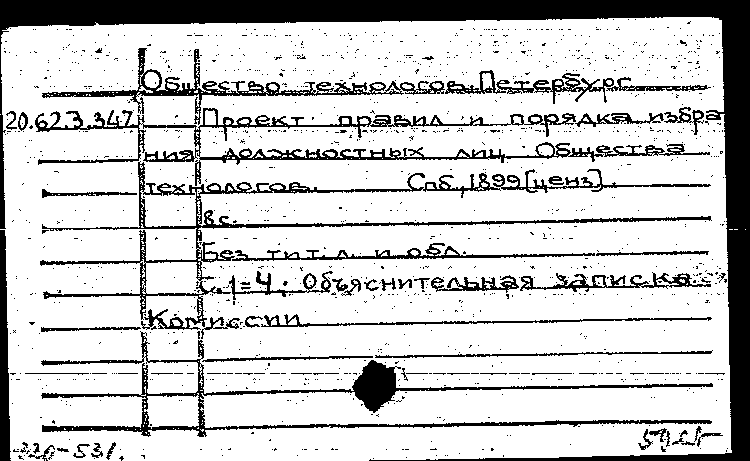 Общество технологов. Петербург
20.62.3.347. Проект правил и порядка избра
ния должностных лиц Общества
технологов. Спб, 1899 [ценз].
8 с.
Без тит. л. и обл.
С. 1=4: Объяснительная записка
Комиссии.
320-531.